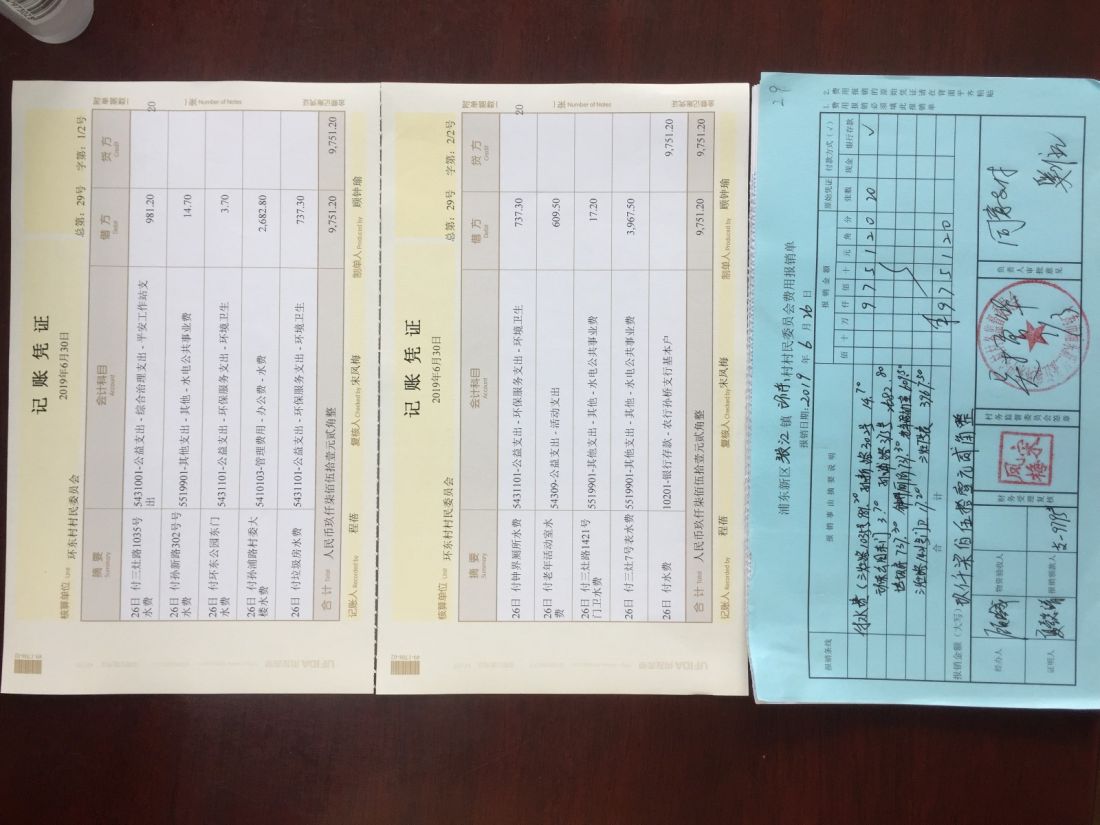 记 账 凭 证
2019年6月30日
总第：29号 字第：1/2号
核算单位 Unit 环东村村民委员会
附单据数 20 张 Number of Notes
摘 要 Summary 会计科目 Account 借 方 Debit 贷 方 Credit
26日 付三灶路1035号水费 5431001-公益支出 - 综合治理支出 - 平安工作站支出 981.20
26日 付孙新路302号号水费 5519901-其他支出 - 其他 - 水电公共事业费 14.70
26日 付环东公园东门水费 5431101-公益支出 - 环保服务支出 - 环境卫生 3.70
26日 付孙浦路村委大楼水费 5410103-管理费用 - 办公费 - 水费 2,682.80
26日 付垃圾房水费 5431101-公益支出 - 环保服务支出 - 环境卫生 737.30
合 计 Total 人民币玖仟柒佰伍拾壹元贰角整 9,751.20 9,751.20
记账人 Recorded by 程蓓 复核人 Checked by 宋凤梅 制单人 Produced by 顾钟瑜
UFIDA
记 账 凭 证
2019年6月30日
总第：29号 字第：2/2号
核算单位 Unit 环东村村民委员会
附单据数 20 张 Number of Notes
摘 要 Summary 会计科目 Account 借 方 Debit 贷 方 Credit
26日 付钟界厕所水费 5431101-公益支出 - 环保服务支出 - 环境卫生 737.30
26日 付老年活动室水费 54309-公益支出 - 活动支出 609.50
26日 付三灶路1421号门卫水费 5519901-其他支出 - 其他 - 水电公共事业费 17.20
26日 付三灶7号表水费 5519901-其他支出 - 其他 - 水电公共事业费 3,967.50
26日 付水费 10201-银行存款 - 农行孙桥支行基本户 9,751.20
合 计 Total 人民币玖仟柒佰伍拾壹元贰角整 9,751.20 9,751.20
记账人 Recorded by 程蓓 复核人 Checked by 宋凤梅 制单人 Produced by 顾钟瑜
UFIDA
29
浦东新区 张江 镇 环东 村村民委员会费用报销单
报销日期：2019 年 6 月 26 日
1. 费用报销必须填此报销单
2. 费用报销的原始凭证请在背面平齐粘贴
报销条线 报销事由摘要说明 报销金额 原始凭证 付款方式（√）
佰 十 万 仟 佰 十 元 角 分 张数 现金 银行存款
付水费 9 7 5 1 2 0 20 √
合 计 ¥ 9 7 5 1 2 0
报销金额（大写） 玖仟柒佰伍拾壹元贰角整
经办人 物资验收人 财务受理复核 宋凤梅 村务监督委员会签章 负责人审批意见
证明人 报销领款人